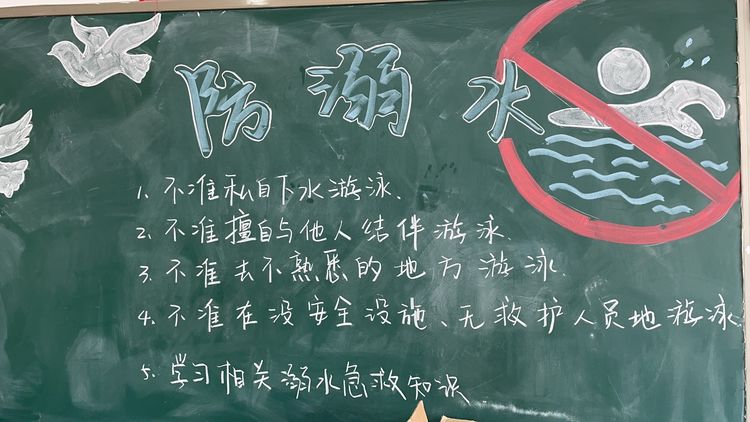 防溺水
1. 不准私自下水游泳.
2. 不准擅自与他人结伴游泳.
3. 不准去不熟悉的地方游泳.
4. 不准在没安全设施、无救护人员地游泳.
5. 学习相关溺水急救知识